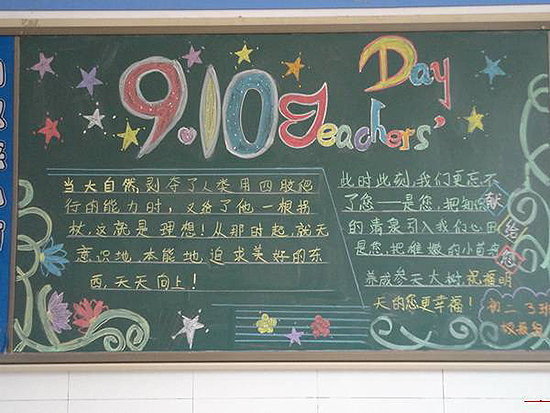 9.10 Teachers' Day
当大自然剥夺了人类用四肢爬
行的能力时，又给了他一根拐
杖，这就是理想！从那时起，就无
意识地、本能地追求美好的东
西，天天向上！
此时此刻，我们更忘不
了您——是您，把知识
的清泉引入我们心田
是您，把稚嫩的小苗
养成参天大树，祝福明
天的您更幸福！
献给您
初二3班